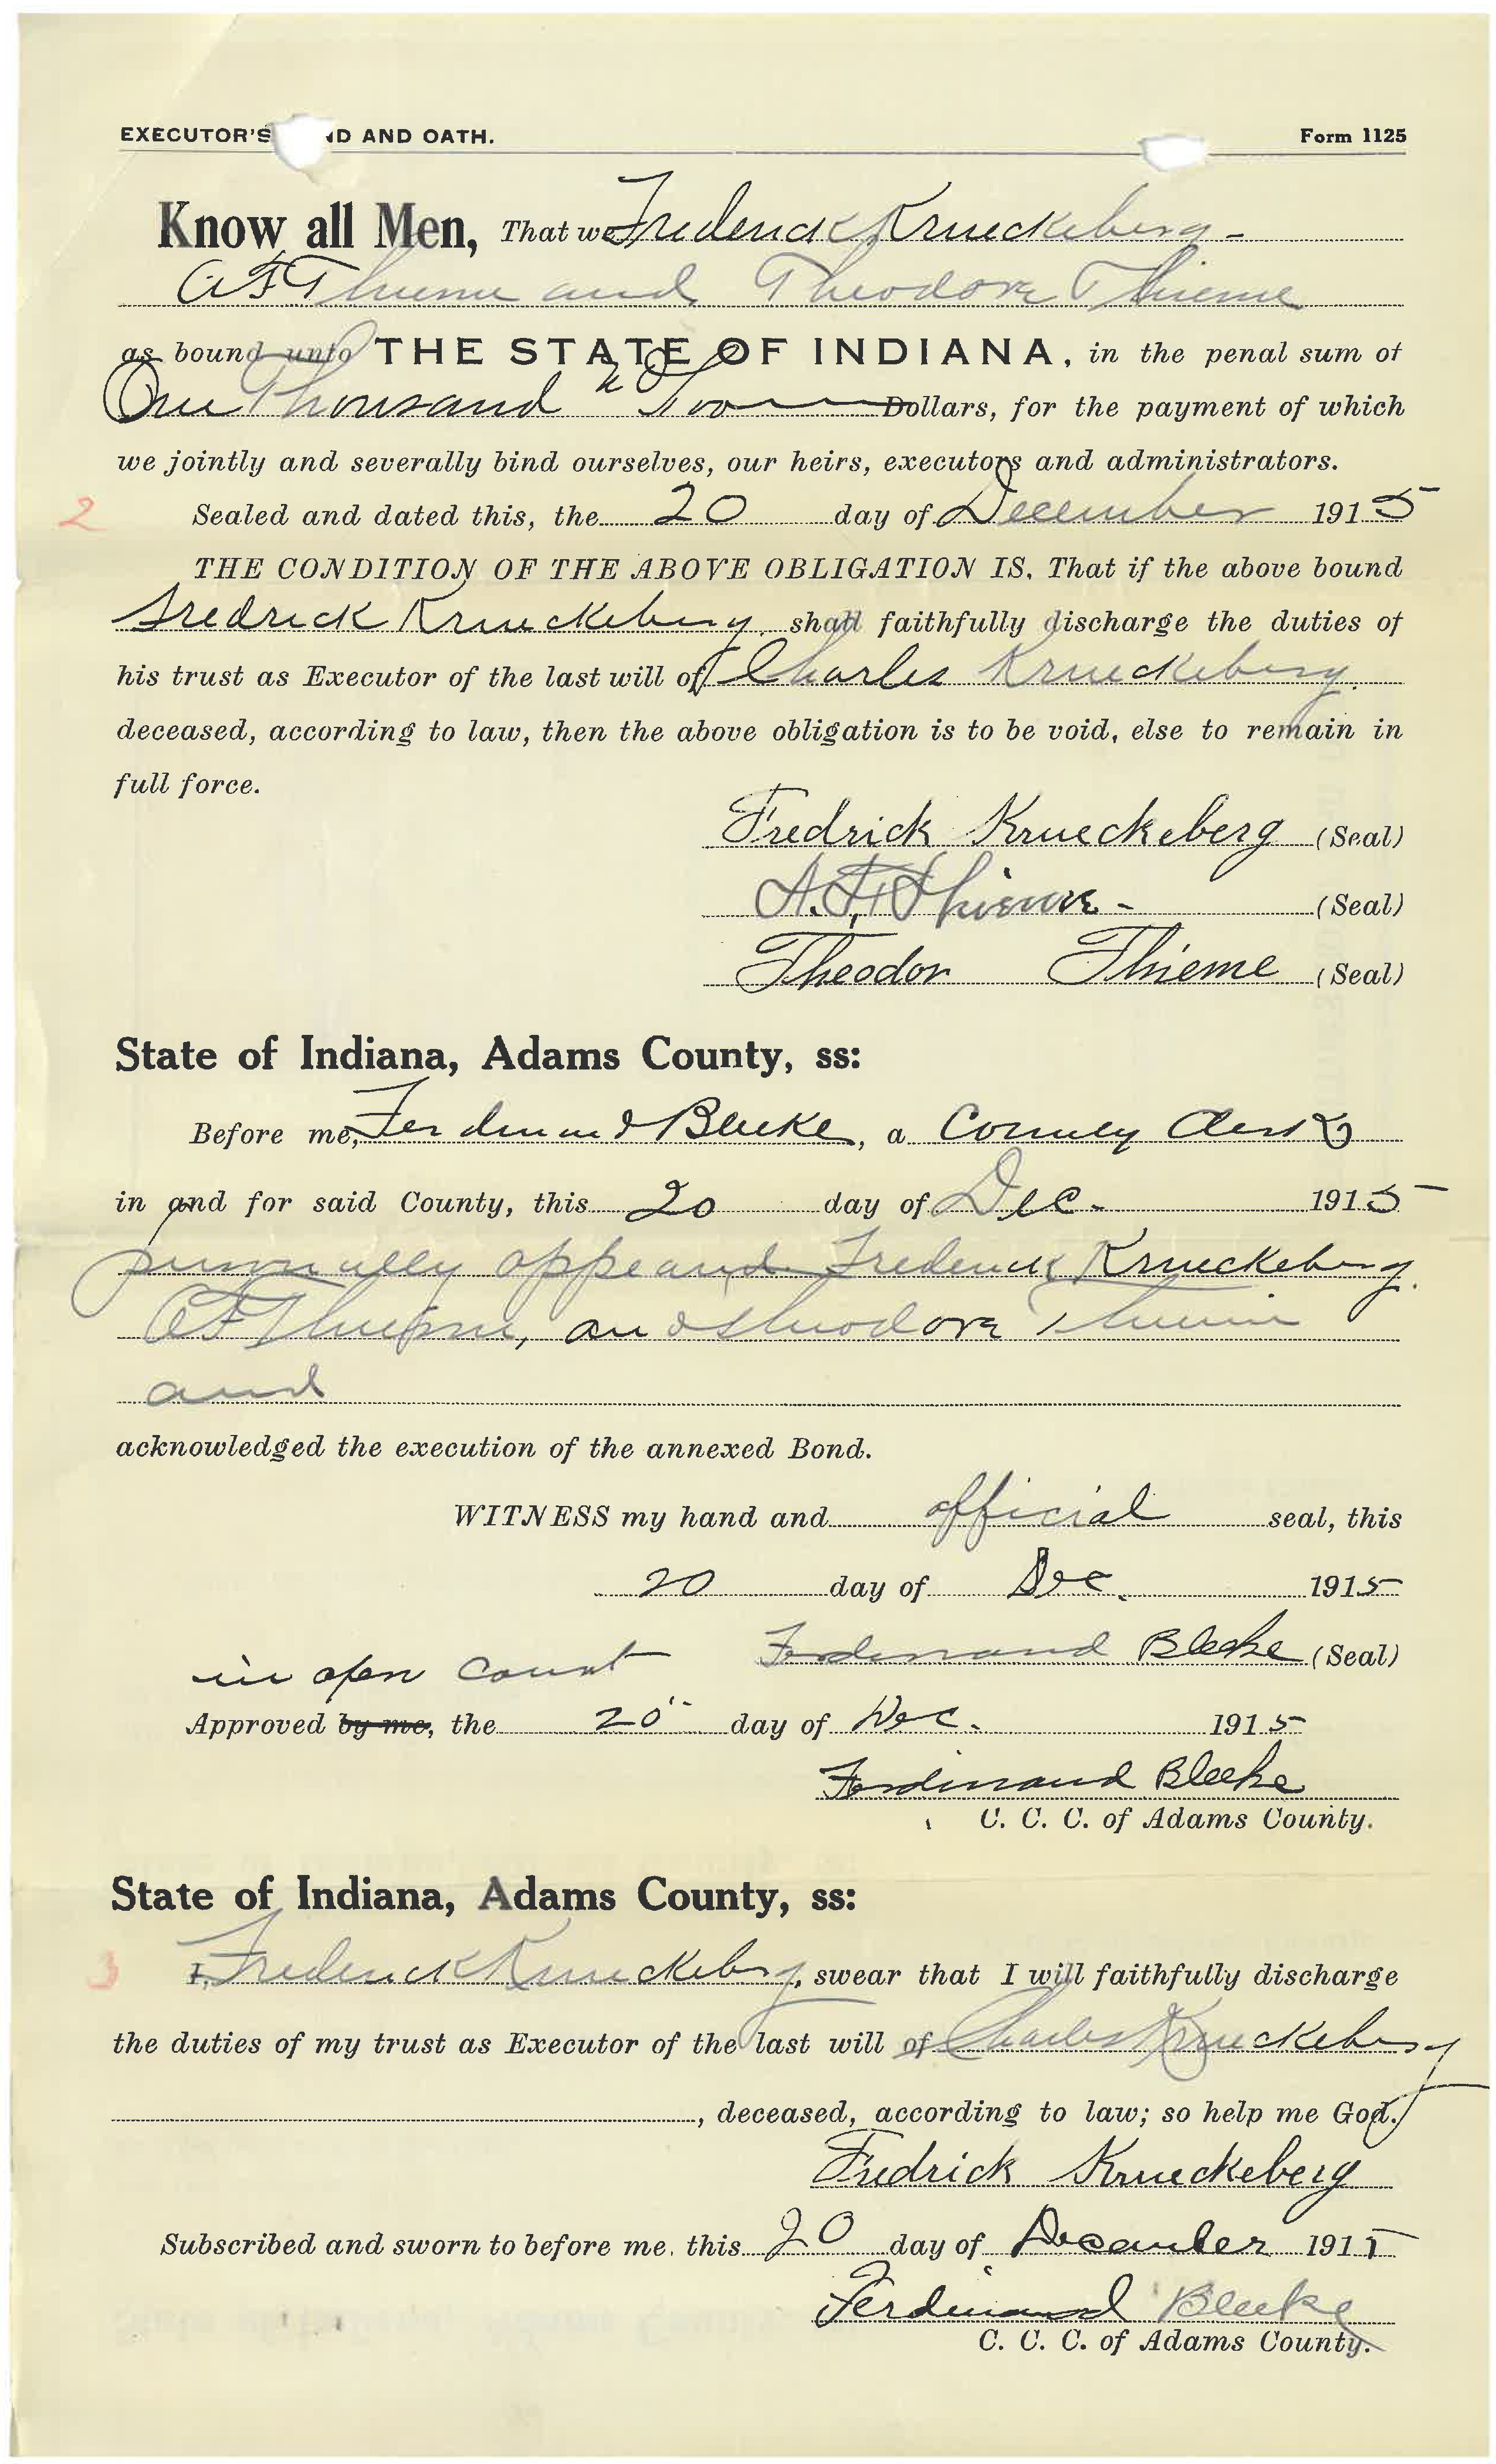 EXECUTOR'S ND AND OATH. Form 1125
Know all Men, That we Frederick Krueckeberg -
A F Thieme and Theodore Thieme
as bound unto THE STATE OF INDIANA, in the penal sum of
One Thousand Dollars, for the payment of which
we jointly and severally bind ourselves, our heirs, executors and administrators.
2 Sealed and dated this, the 20 day of December 1915
THE CONDITION OF THE ABOVE OBLIGATION IS, That if the above bound
Fredrick Krueckeberg, shall faithfully discharge the duties of
his trust as Executor of the last will of Charles Krueckeberg.
deceased, according to law, then the above obligation is to be void, else to remain in
full force.
Fredrick Krueckeberg (Seal)
A. F. Thieme - (Seal)
Theodor Thieme (Seal)
State of Indiana, Adams County, ss:
Before me, Ferdinand Bleeke, a County Clerk
in and for said County, this 20 day of Dec. 1915
personally appeared Frederick Krueckeberg.
A F Thieme, and Theodore Thieme
and
acknowledged the execution of the annexed Bond.
WITNESS my hand and official seal, this
20 day of Dec. 1915
in open Court Ferdinand Bleeke (Seal)
Approved by me, the 20" day of Dec. 1915
Ferdinand Bleeke
C. C. C. of Adams County.
State of Indiana, Adams County, ss:
3 I, Frederick Krueckeberg, swear that I will faithfully discharge
the duties of my trust as Executor of the last will of Charles Krueckeberg
, deceased, according to law; so help me God.
Fredrick Krueckeberg
Subscribed and sworn to before me, this 20 day of December 1915
Ferdinand Bleeke
C. C. C. of Adams County.